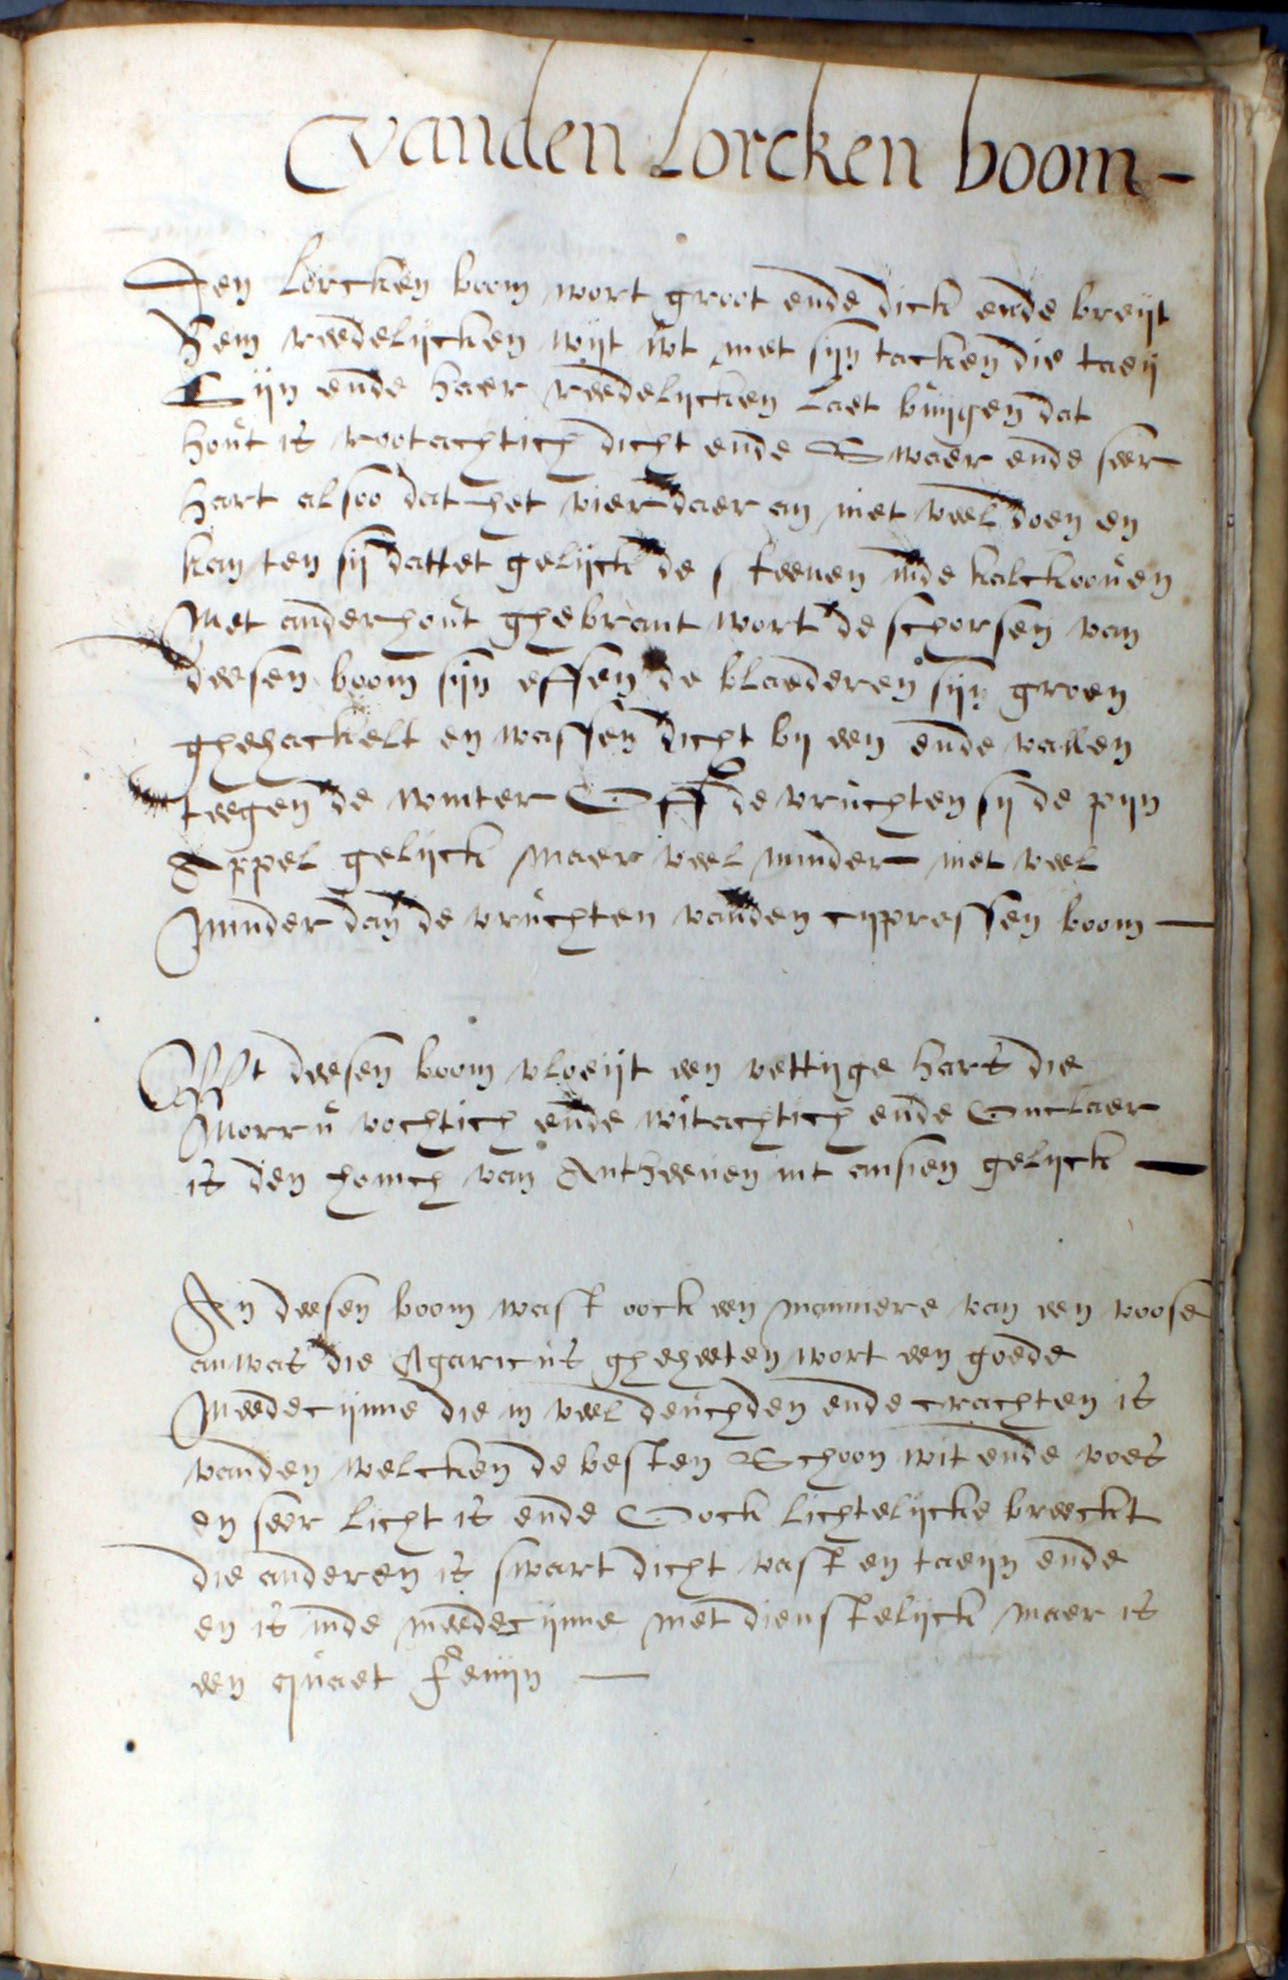 vanden Lorcken boom -
Den Lorcken boom wort groot ende dick ende breijt
Hem reedelijcken wijt wt met sijn tacken die taeij
Sijn ende haer reedelijcken Laet buijgen dat
hout is rootachtich dicht ende Swaer ende seer
hart alsoo dat het vier daer an niet veel doen en
kan ten sij dattet gelijck de steenen inde kalckooven
Met ander hout ghebrant wort de schorsen van
deesen boom sijn effen de blaederen sijn groen
ghehackelt en wassen dicht bij een ende vallen
teegen de winter Off de vruchten sij de pijn
Appel gelijck maer veel minder niet veel
Minder dan de vruchten vanden cijpressen boom —
Wt deesen boom vloeijt een vettijge hars die
Morru vochtich ende witachtich ende Onclaer
is den honich van Antheenen int ansien gelijck —
An deesen boom wast oock een manniere van een voose
anwas die Agaricus gheheeten wort een goede
Meedecijnne die in veel deuchden ende crachten is
vanden welcken de besten Schoon wit ende voes
en seer licht is ende Oock lichtelijcke breeckt
die anderen is swart dicht vast en taeijn ende
en is inde meedecijnne niet dienstelijck maer is
een quaet fenijn —